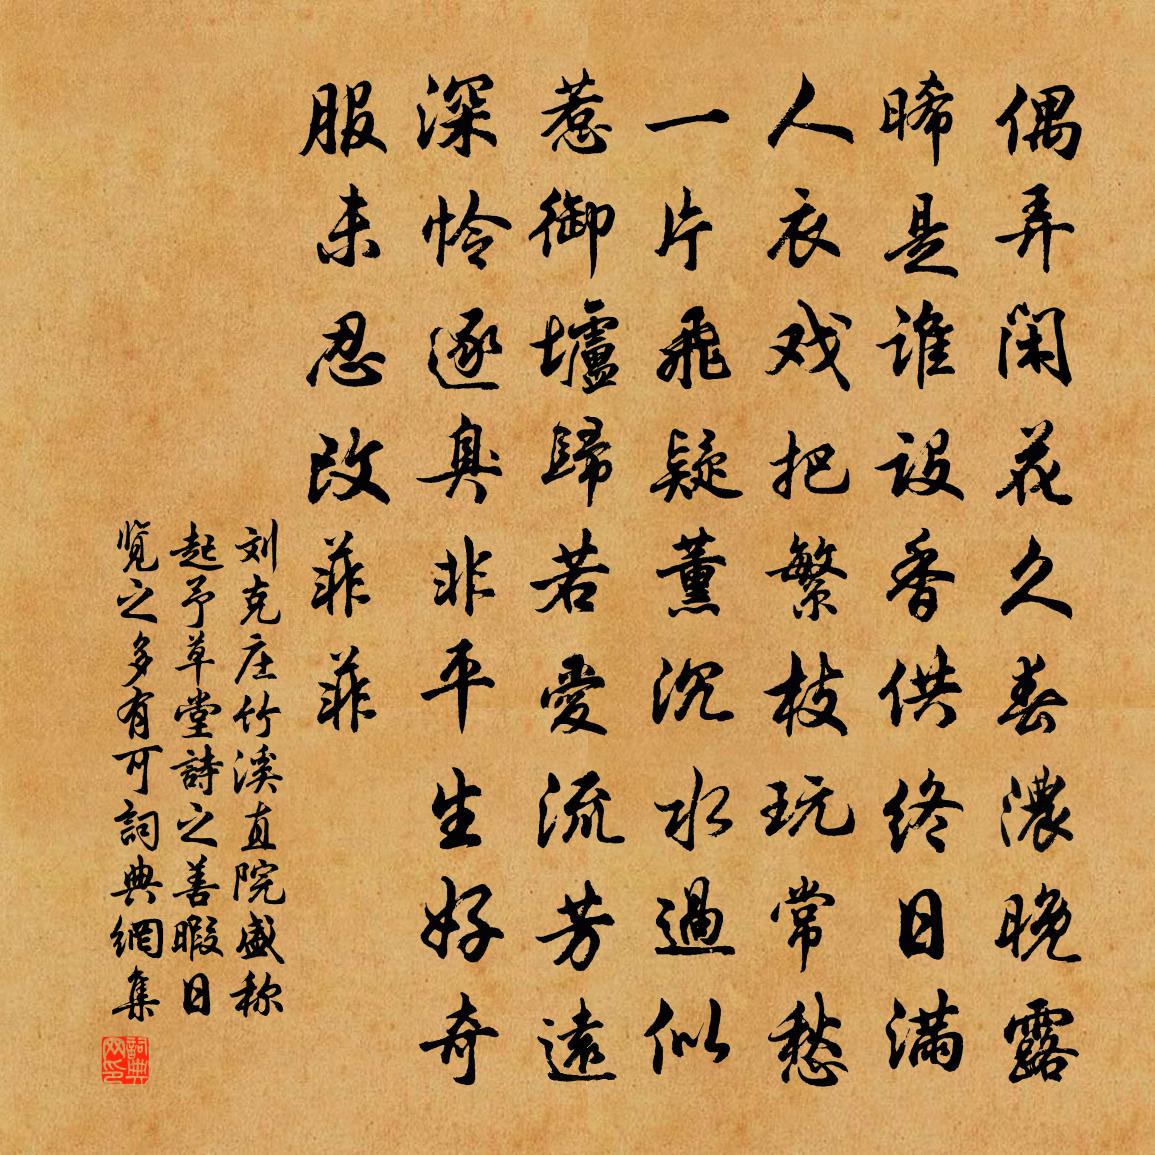 偶弄闲花久春濃晚露
晞是谁设香供终日滿
人衣戏把繁枝玩常愁
一片飛疑薰沉水過似
惹御壚歸若愛流芳遠
深怜逐臭非平生好奇
服未忍改菲菲
刘克庄竹溪直院盛称
起予草堂詩之善暇日
览之多有可詞典網集
詞典网印